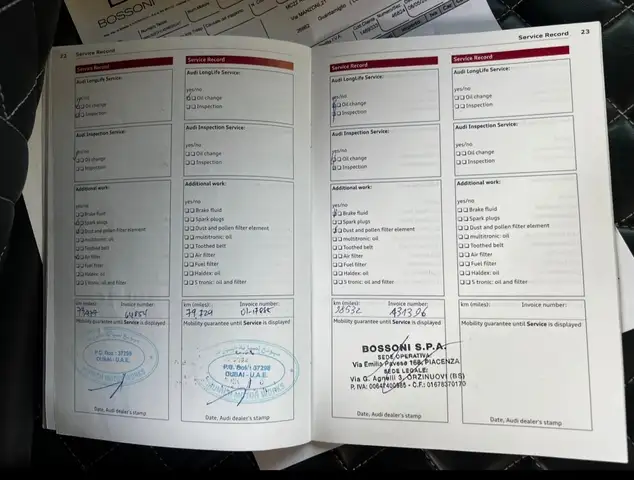 BOSSONI
22 Service Record
Service Record
Audi LongLife Service:
yes/no
Oil change
Inspection
Audi Inspection Service:
yes/no
Oil change
Inspection
Additional work:
yes/no
Brake fluid
Spark plugs
Dust and pollen filter element
multitronic: oil
Toothed belt
Air filter
Fuel filter
Haldex: oil
S tronic: oil and filter
km (miles): Invoice number:
Mobility guarantee until Service is displayed
P.O. Box : 37298
DUBAI - U.A.E.
Date, Audi dealer's stamp
Service Record
Audi LongLife Service:
yes/no
Oil change
Inspection
Audi Inspection Service:
yes/no
Oil change
Inspection
Additional work:
yes/no
Brake fluid
Spark plugs
Dust and pollen filter element
multitronic: oil
Toothed belt
Air filter
Fuel filter
Haldex: oil
S tronic: oil and filter
km (miles): Invoice number:
79.229
Mobility guarantee until Service is displayed
P.O. Box : 37298
DUBAI - U.A.E.
Date, Audi dealer's stamp
Service Record 23
Service Record
Audi LongLife Service:
yes/no
Oil change
Inspection
Audi Inspection Service:
yes/no
Oil change
Inspection
Additional work:
yes/no
Brake fluid
Spark plugs
Dust and pollen filter element
multitronic: oil
Toothed belt
Air filter
Fuel filter
Haldex: oil
S tronic: oil and filter
km (miles): Invoice number:
431396
Mobility guarantee until Service is displayed
BOSSONI S.P.A.
SEDE OPERATIVA:
Via Emilia Pavese 168, PIACENZA
SEDE LEGALE:
Via G. Agnelli 3, ORZINUOVI (BS)
P. IVA: 00647400985 - C.F.: 01678370170
Date, Audi dealer's stamp
Service Record
Audi LongLife Service:
yes/no
Oil change
Inspection
Audi Inspection Service:
yes/no
Oil change
Inspection
Additional work:
yes/no
Brake fluid
Spark plugs
Dust and pollen filter element
multitronic: oil
Toothed belt
Air filter
Fuel filter
Haldex: oil
S tronic: oil and filter
km (miles): Invoice number:
Mobility guarantee until Service is displayed
Date, Audi dealer's stamp